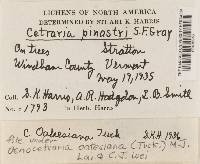 LICHENS OF NORTH AMERICA
DETERMINED BY STUART K. HARRIS
Cetraria pinastri S.F. Gray
On trees Stratton
Windham County Vermont
May 19, 1935
Coll. S.K. Harris, A.R. Hodgdon, L.B. Smith
No. 1793 in Herb. Harris
C. Oakesiana Tuck
S.K.H. 1936
file under
(Tuck.) M.J.
Lai & C.J. Wei